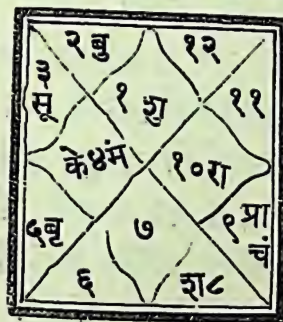 २ बु १२
३ सू १ शु ११
के४मं १०रा
५बृ ७ ९ प्रा चं
६ श८